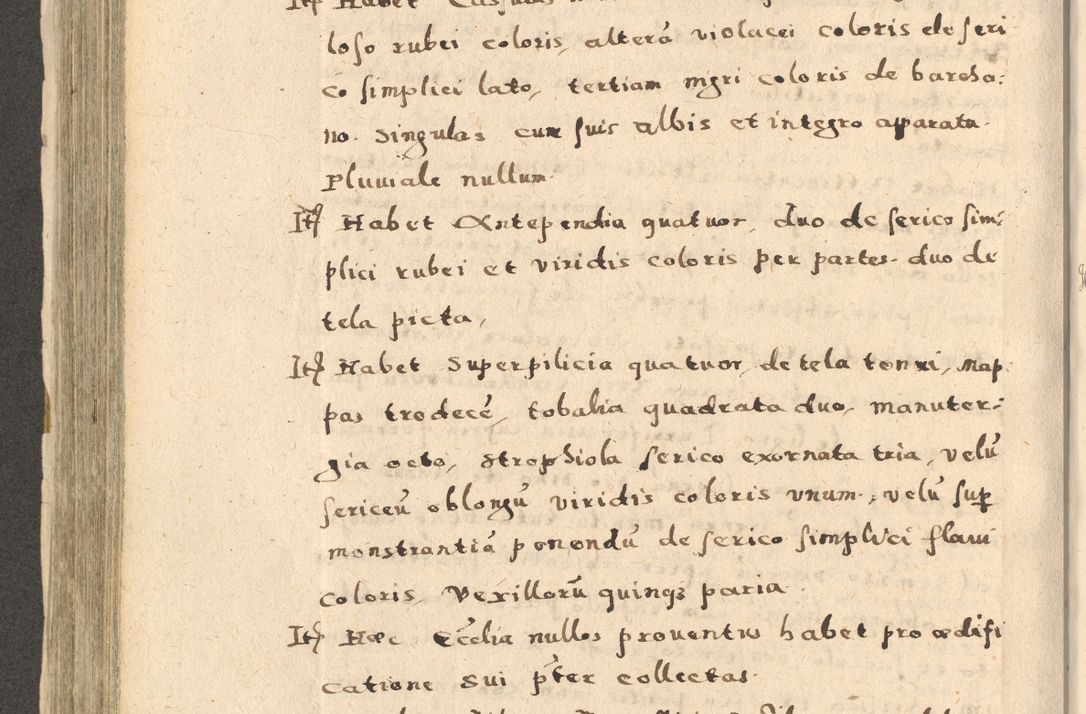 Itꝭ Habet Casulas
loso rubei coloris, alterā violacei coloris de seri
co simplici lato, tertiam nigri coloris de barcha:
no. Singulas cum suis albis et integro apparatu.
Pluuiale nullum.
Itꝭ Habet Antependia quatuor, duo de serico sim:
plici rubei et viridis coloris per partes. duo de
tela picta,
Itꝭ Habet Superpilicia quatuor, de tela tenui, Map:
pas tredecē, tobalia quadrata duo, manuter:
gia octo, strophiola serico exornata tria, velū
sericeū oblongū viridis coloris vnum., velū sup
monstrantiā ponendū de serico simplici flaui
coloris, Vexillorū quinqꝫ paria.
Itꝭ Hæc Ecclia nullos prouentus habet pro ædifi
catione sui pter collectas.